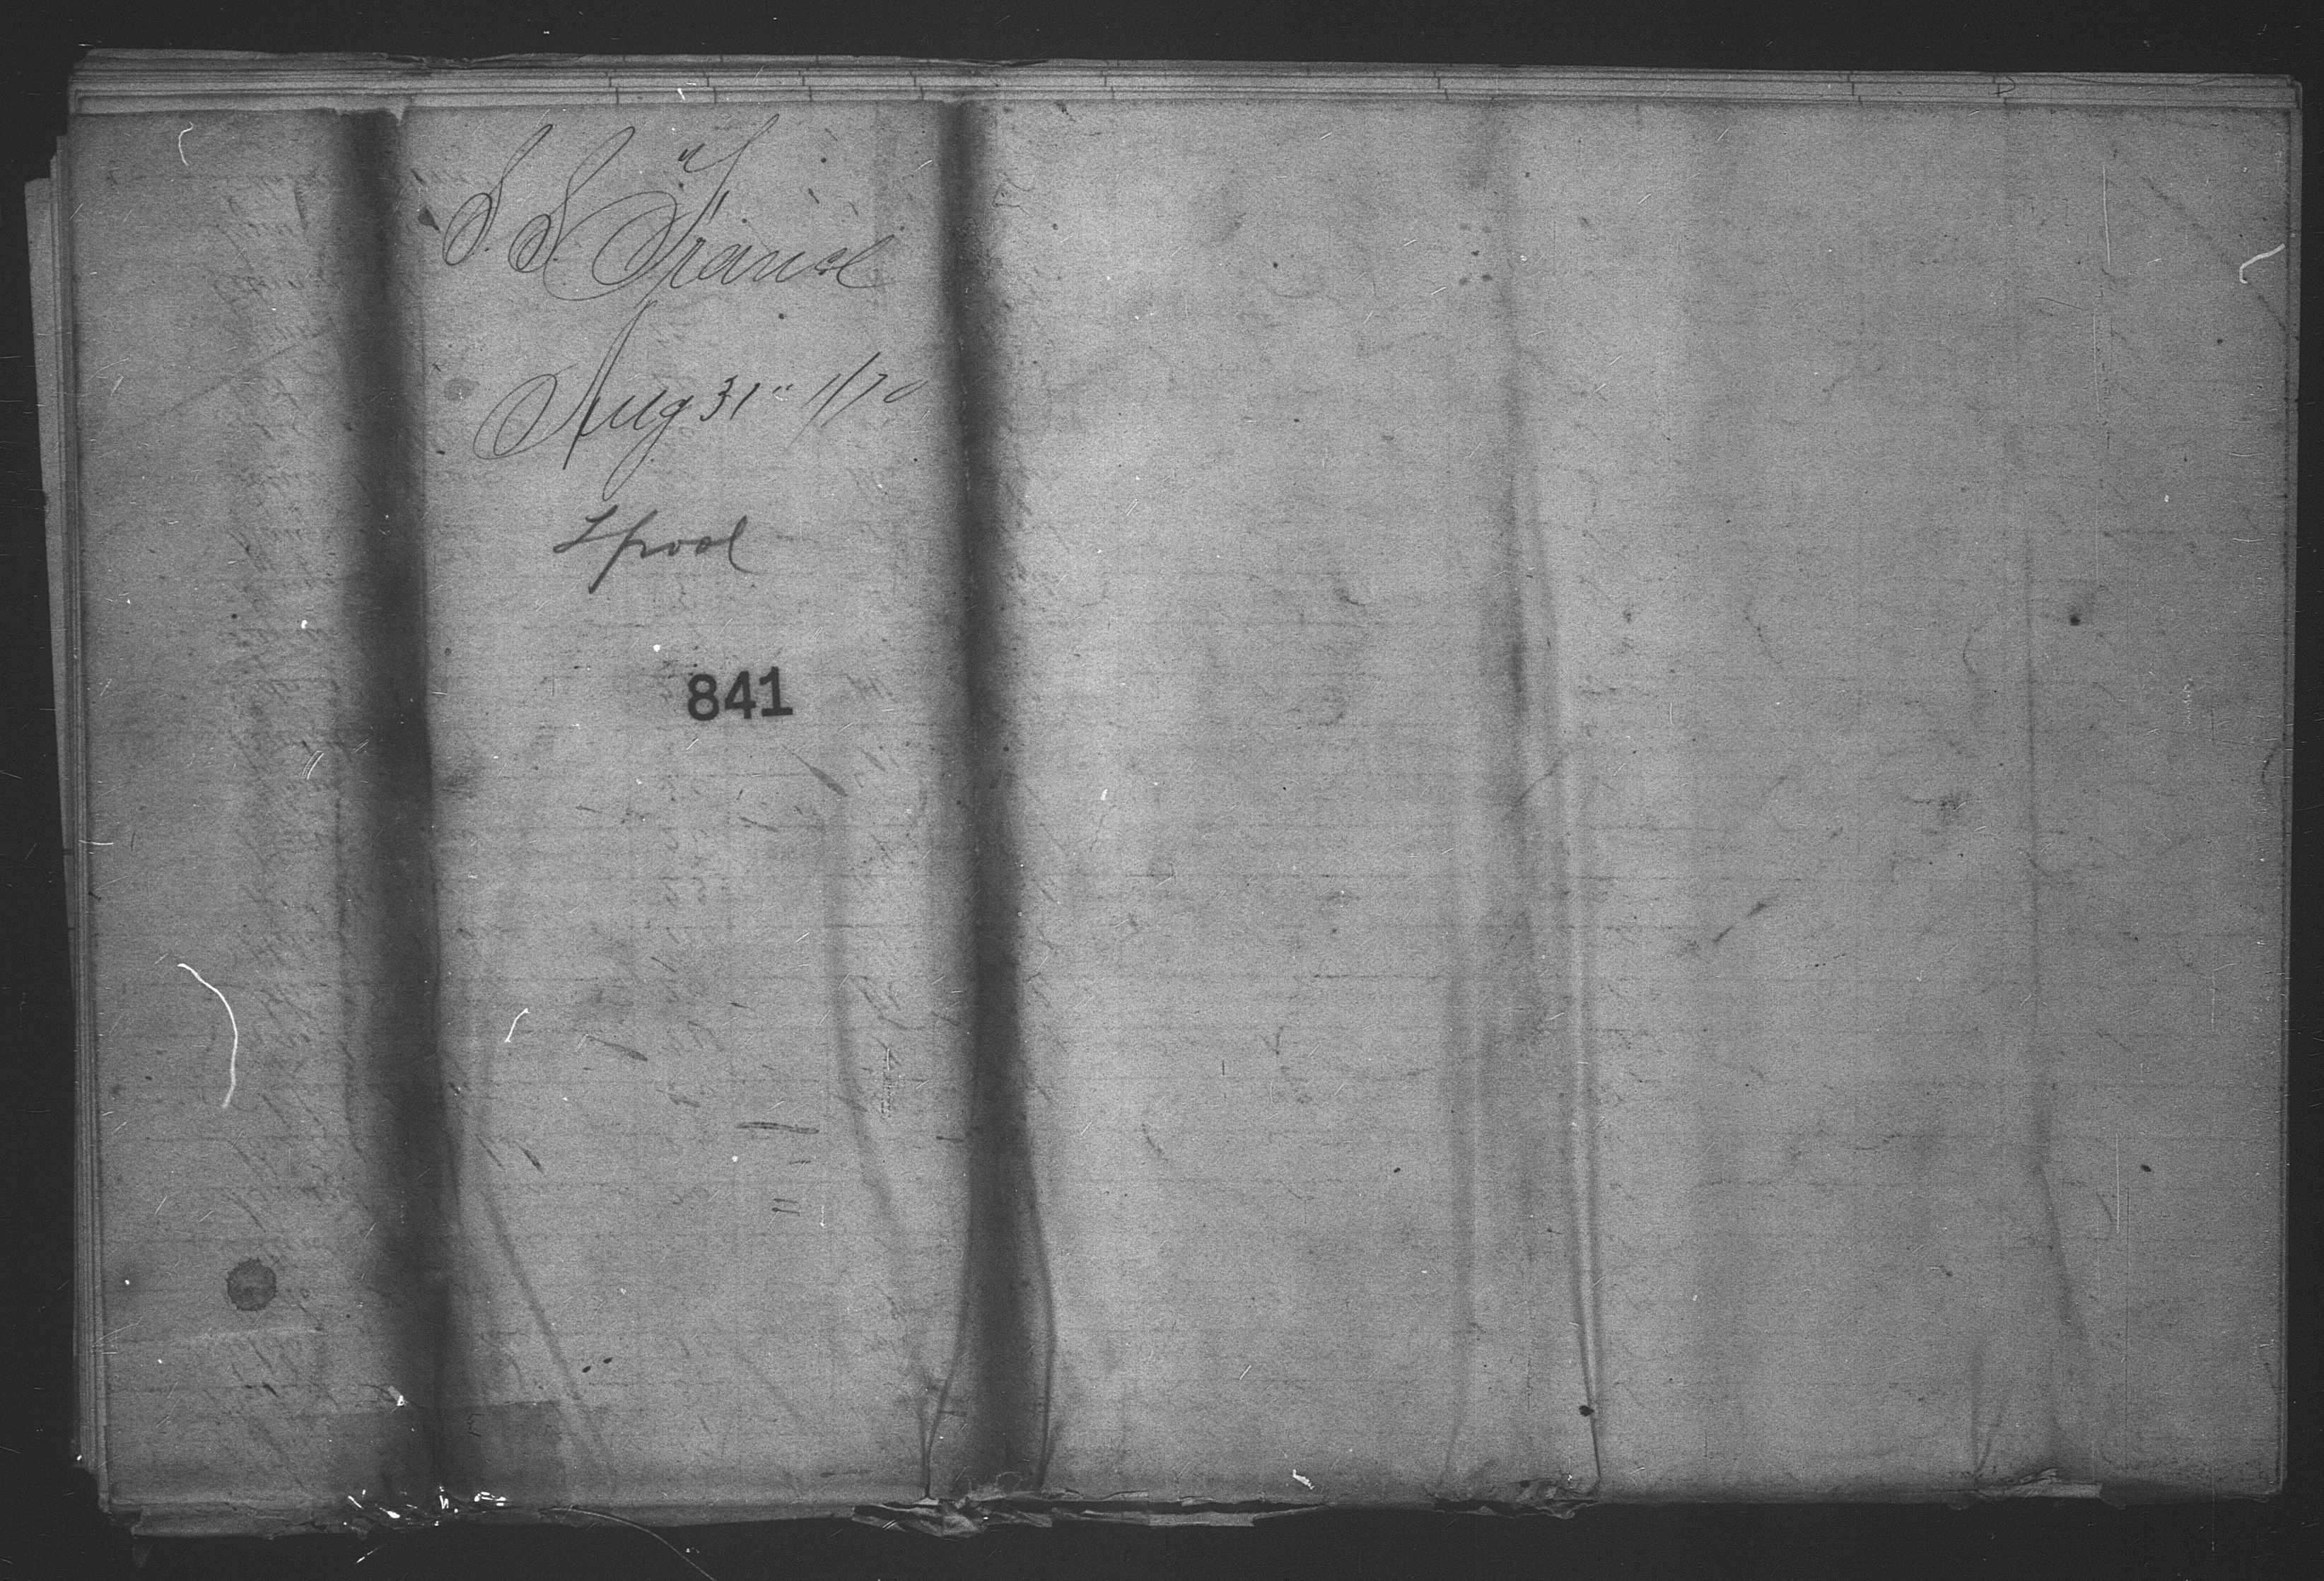 S. S. "France"
Aug 31" 1/70
Lpool
841